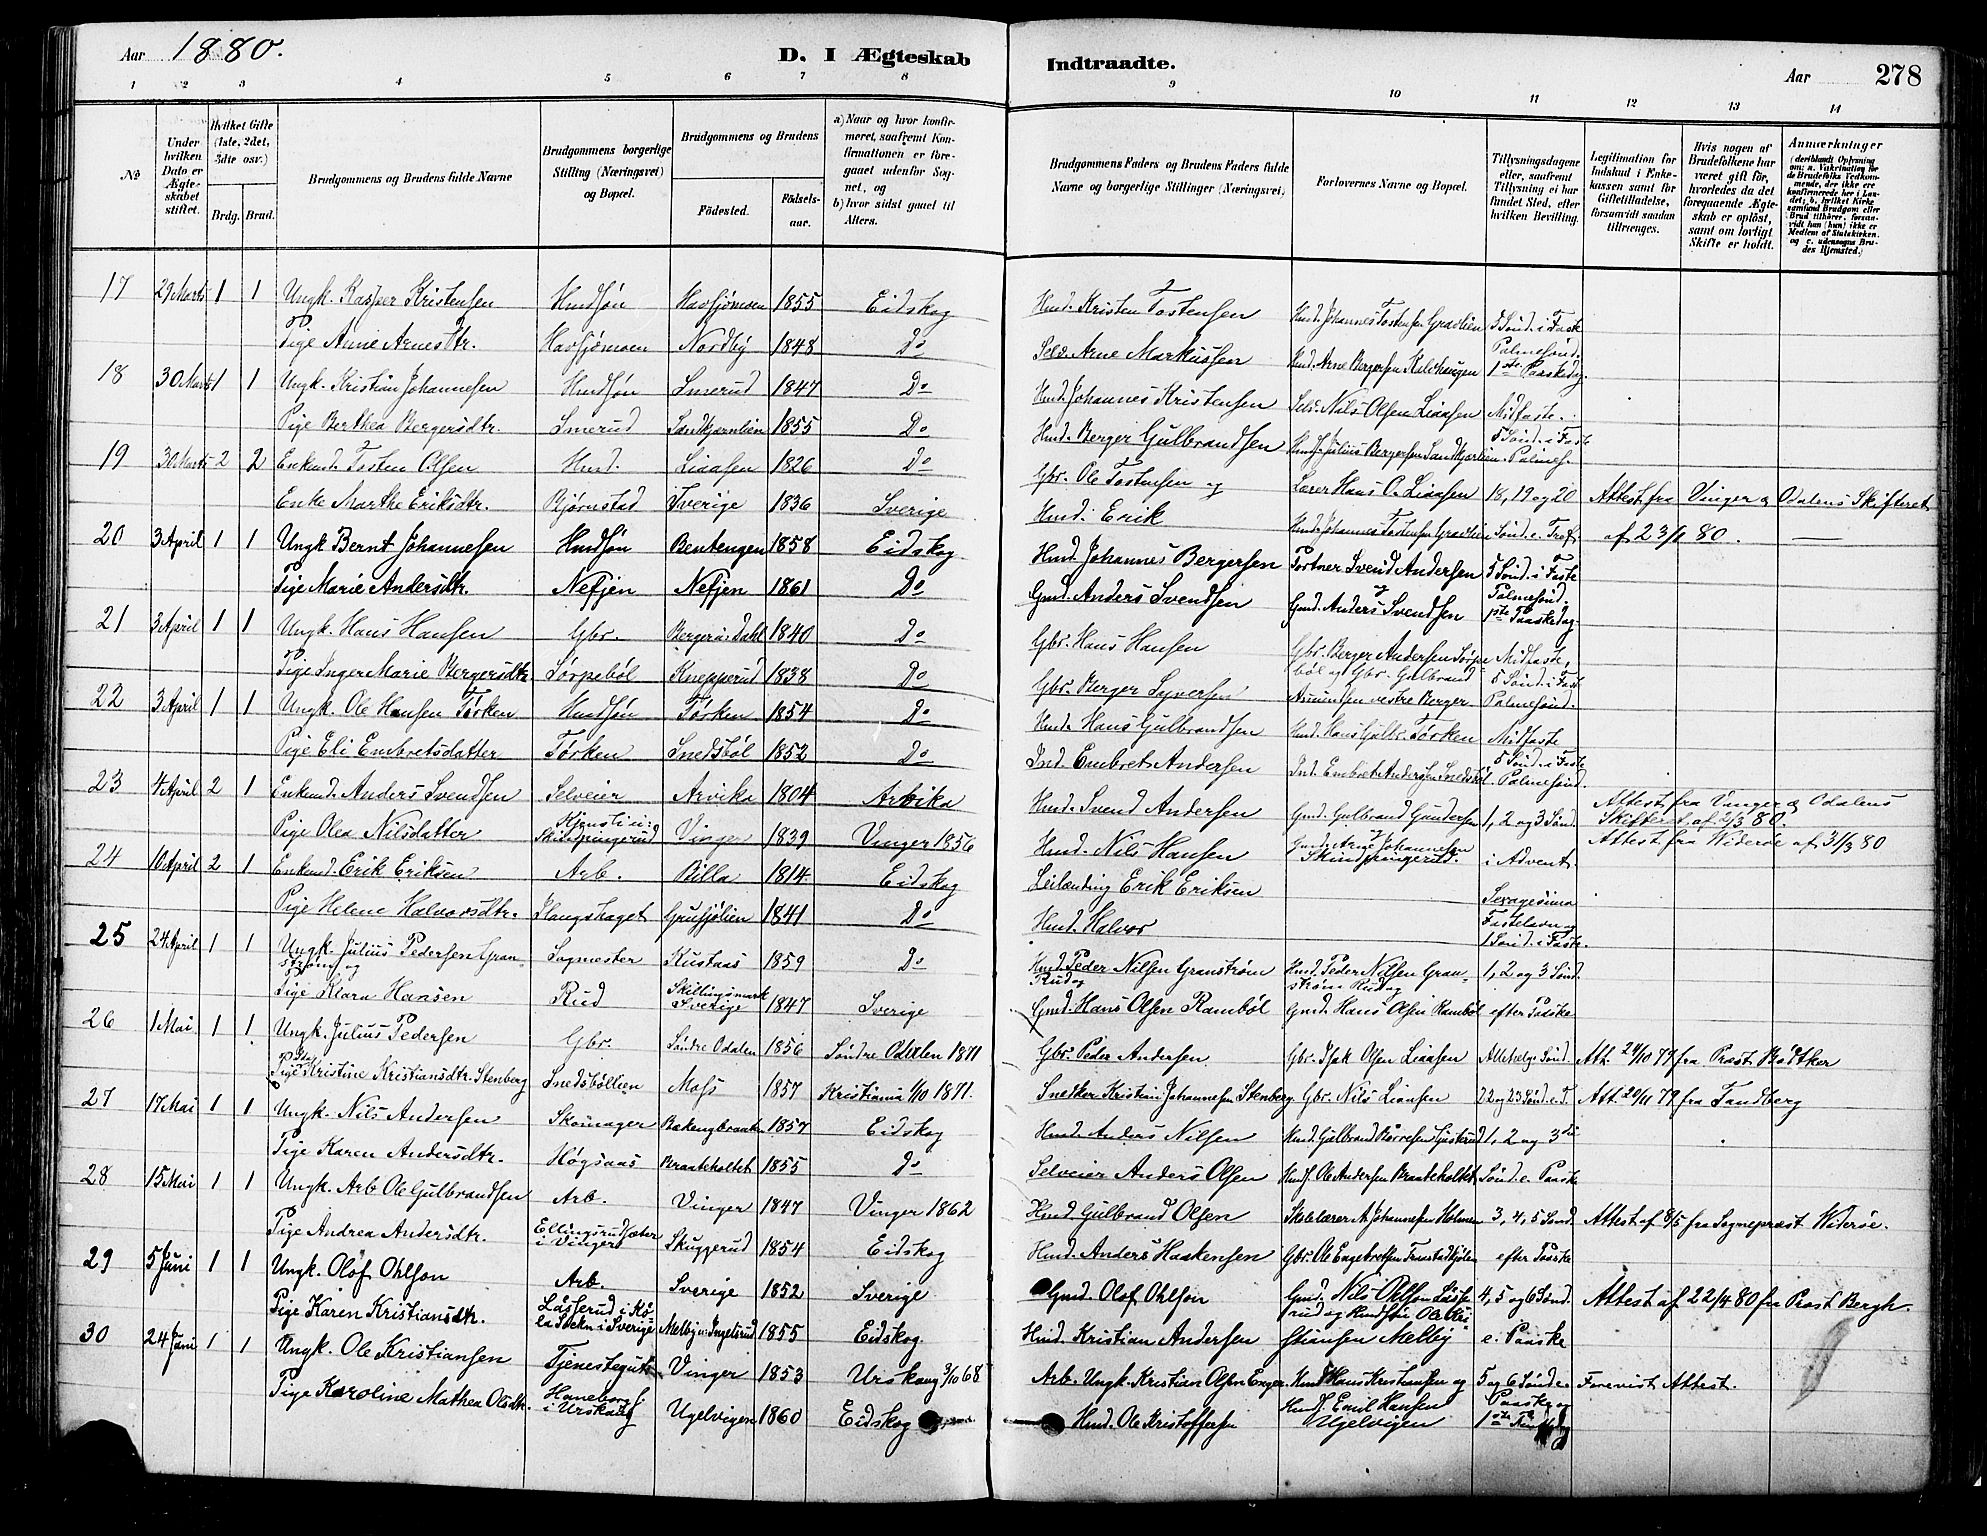 Aar 1880.
D. I Ægteskab Indtraadte.
Aar 278
1 2 3 4 5 6 7 8 9 10 11 12 13 14
No
Under hvilken Dato er Ægteskabet stiftet.
Hvilket Gifte (1ste, 2det, 3dte osv.)
Brdg. Brud.
Brudgommens og Brudens fulde Navne
Brudgommens borgerlige Stilling (Næringsvei) og Bopæl.
Brudgommens og Brudens
Fødested. Fødselsaar.
a) Naar og hvor konfirmeret, saafremt Konfirmationen er foregaaet udenfor Sognet, og
b) hvor sidst gaaet til Alters.
Brudgommens Faders og Brudens Faders fulde Navne og borgerlige Stillinger (Næringsvei)
Forlovernes Navne og Bopæl.
Tillysningsdagene eller, saafremt Tillysning ei har fundet Sted, efter hvilken Bevilling.
Legitimation for Indskud i Enkekassen samt for Giftetilladelse, forsaavidt saadan tiltrænges.
Hvis nogen af Brudefolkene har været gift før, hvorledes da det foregaaende Ægteskab er opløst, samt om lovligt Skifte er holdt.
Anmærkninger
17 29 Marts 1 1 Ungk. Kasper Kristensen Hmdsøn Havsjømoen 1855 Eidskog Hmd. Kristen Tostensen Hmd. Johannes Tostensen Gravlien 5 Sønd. i Faste
Pige Anne Arnesdtr. Havsjømoen Nordby 1848 Do Selv. Arne Markussen Hmd. Arne Bergersen Kaldhaugen Palmesønd. 1ste Paaskedag
18 30 Marts 1 1 Ungk. Kristian Johannesen Hmdsøn Smerud 1847 Do Hmd. Johannes Kristensen Selv. Nils Olsen Liaasen Midfaste.
Pige Berthea Bergersdtr. Smerud Sandkjærnlien 1855 Do Hmd. Berger Gulbrandsen Hmds. Julius Bergersen Sandkjærlien 5 Sønd. i Faste Palmes.
19 30 Marts 2 2 Enkemd. Tosten Olsen Hmd. Liaasen 1826 Do Gbr. Ole Tostensen og Lærer Hans O. Liaasen 18, 19 og 20 Attest fra Vinger & Odalens Skifteret
Enke Marthe Eriksdtr. Bjørnstad Sverige 1836 Sverige Hmd. Erik Hmd. Johannes Tostensen Gravlien Sønd. e. Tref. af 23/1 80.
20 3 April 1 1 Ungk Bernt Johannesen Hmdsøn Bentengen 1858 Eidskog Hmd. Johannes Bergersen Portner Svend Andersen 5 Sønd. i Faste
Pige Marie Andersdtr. Nefjen Nefjen 1861 Do Gmd. Anders Svendsen og Gmd. Anders Svendsen Palmesønd. 1ste Paaskedag
21 3 April 1 1 Ungk. Hans Hansen Gbr. Berger Dahl 1840 Do Gbr. Hans Hansen Gbr. Berger Andersen Sørpe- Midfaste,
Pige Inger Marie Bergersdtr Sørpebøl Knepperud 1838 Do Gbr. Berger Syversen bøl og Gbr. Gulbrand Amundsen vestre Berger 5 Sønd. i Faste Palmesønd.
22 3 April 1 1 Ungk. Ole Hansen Tørken Hmdsøn Tørken 1854 Do Hmd. Hans Gulbrandsen Hmd. Hans Gulbr. Tørken Midfaste
Pige Eli Embretsdatter Tørken Snedsbøl 1852 Do Ind. Embret Andersen Ind. Embret Andersen Snedsbøl 5 Sønd. i Faste Palmesønd.
23 4 April 2 1 Enkemd. Anders Svendsen Selveier Arvika 1804 Arvika Hmd. Svend Andersen Gmd. Gulbrand Gundersen 1, 2 og 3 Sønd. Attest fra Vinger & Odalens Skifteret af 2/3 80.
Pige Olea Nilsdatter Skindpungerud Vinger 1839 Vinger 1856 Hmd. Nils Hansen Johannesen Skindpungerud. i Advent. Attest fra Widerøe af 31/3 80
24 10 April 2 1 Enkemd. Erik Eriksen Arb. Billa 1814 Eidskog Leilænding Erik Eriksen Sexagesima
Pige Helene Halvorsdtr. Slangshaget Grusjølien 1841 Do Hmd. Halvor Fastelavn og 1 Sønd. i Faste.
25 24 April 1 1 Ungk. Julius Pedersen Granstrøm og Sagmester Kustaas 1859 Do Hmd. Peder Nilsen Granstrøm Rud og Hmd. Peder Nilsen Granstrøm Rud og 1, 2 og 3 Sønd.
Pige Klara Hansen Rud Skillingsmark Sverige 1847 Sverige Gmd. Hans Olsen Rambøl Gmd. Hans Olsen Rambøl efter Paaske
26 1 Mai. 1 1 Ungk. Julius Pedersen Gbr. Søndre Odalen 1856 Søndre Odalen 1871 Gbr. Peder Andersen Gbr. Isak Olsen Liaasen Allehelg. Sønd. Att. 24/10 79 fra Præst. Bødtker
Pige Kristine Kristiansdtr. Stenberg Snedsbøllien Moss 1857 Kristiania 1/10 1871. Snedker Kristian Johannesen Stenberg Gbr. Nils Liaasen 22 og 23 Sønd. e. T. Att. 20/11 79 fra Tandberg
27 17 Mai 1 1 Ungk. Nils Andersen Skomager Bakengbraaten 1857 Eidskog Hmd. Anders Nilsen Hmd. Gulbrand Børresen Gjæterud 1, 2 og 3die
Pige Karen Andersdtr. Høgsaas Braateholtet 1855 Do Selveier Anders Olsen Hmds. Ole Andersen Braateholtet Sønd. e. Paaske
28 15 Mai 1 1 Ungk. Arb Ole Gulbrandsen Arb. Vinger 1847 Vinger 1862 Hmd. Gulbrand Olsen Skolelærer A. Johannesen Holmen 3, 4, 5 Sønd. Attest af 8/5 fra Sognepræst Widerøe.
Pige Andrea Andersdtr. Ellingsrudsæter i Vinger Skuggerud 1854 Eidskog Hmd. Anders Haakensen Gbr. Ole Engebretsen efter Paaske
29 5 Juni 1 1 Ungk. Olof Ohlson Arb. Sverige 1852 Sverige Gmd. Olof Ohlson Gmd. Nils Ohlson Lässe- 4, 5 og 6 Sønd. Attest af 22/4 80 fra Prost Bergh.
Pige Karen Kristiansdtr. Lässerud i Kø-la Sokn i Sverige Melby Ingelsrud 1855 Eidskog. Hmd. Kristian Andersen rud og Hmdsøn Ole Kristiansen Melby e. Paaske
30 24 Juni 1 1 Ungk. Ole Kristiansen Tjenestegut Vinger 1853 Urskoug 3/10 68 Arb. Ungk. Kristian Olsen Enger Hmd Hans Kristensen og 5 og 6 Sønd. e. Paaske og Forevist Attest.
Pige Karoline Mathea Olsdtr. Haneborg i Urskoug Ugelvigen 1860 Eidskog Hmd. Ole Kristoffersen Hmds. Emil Hansen Ugelvigen 1ste